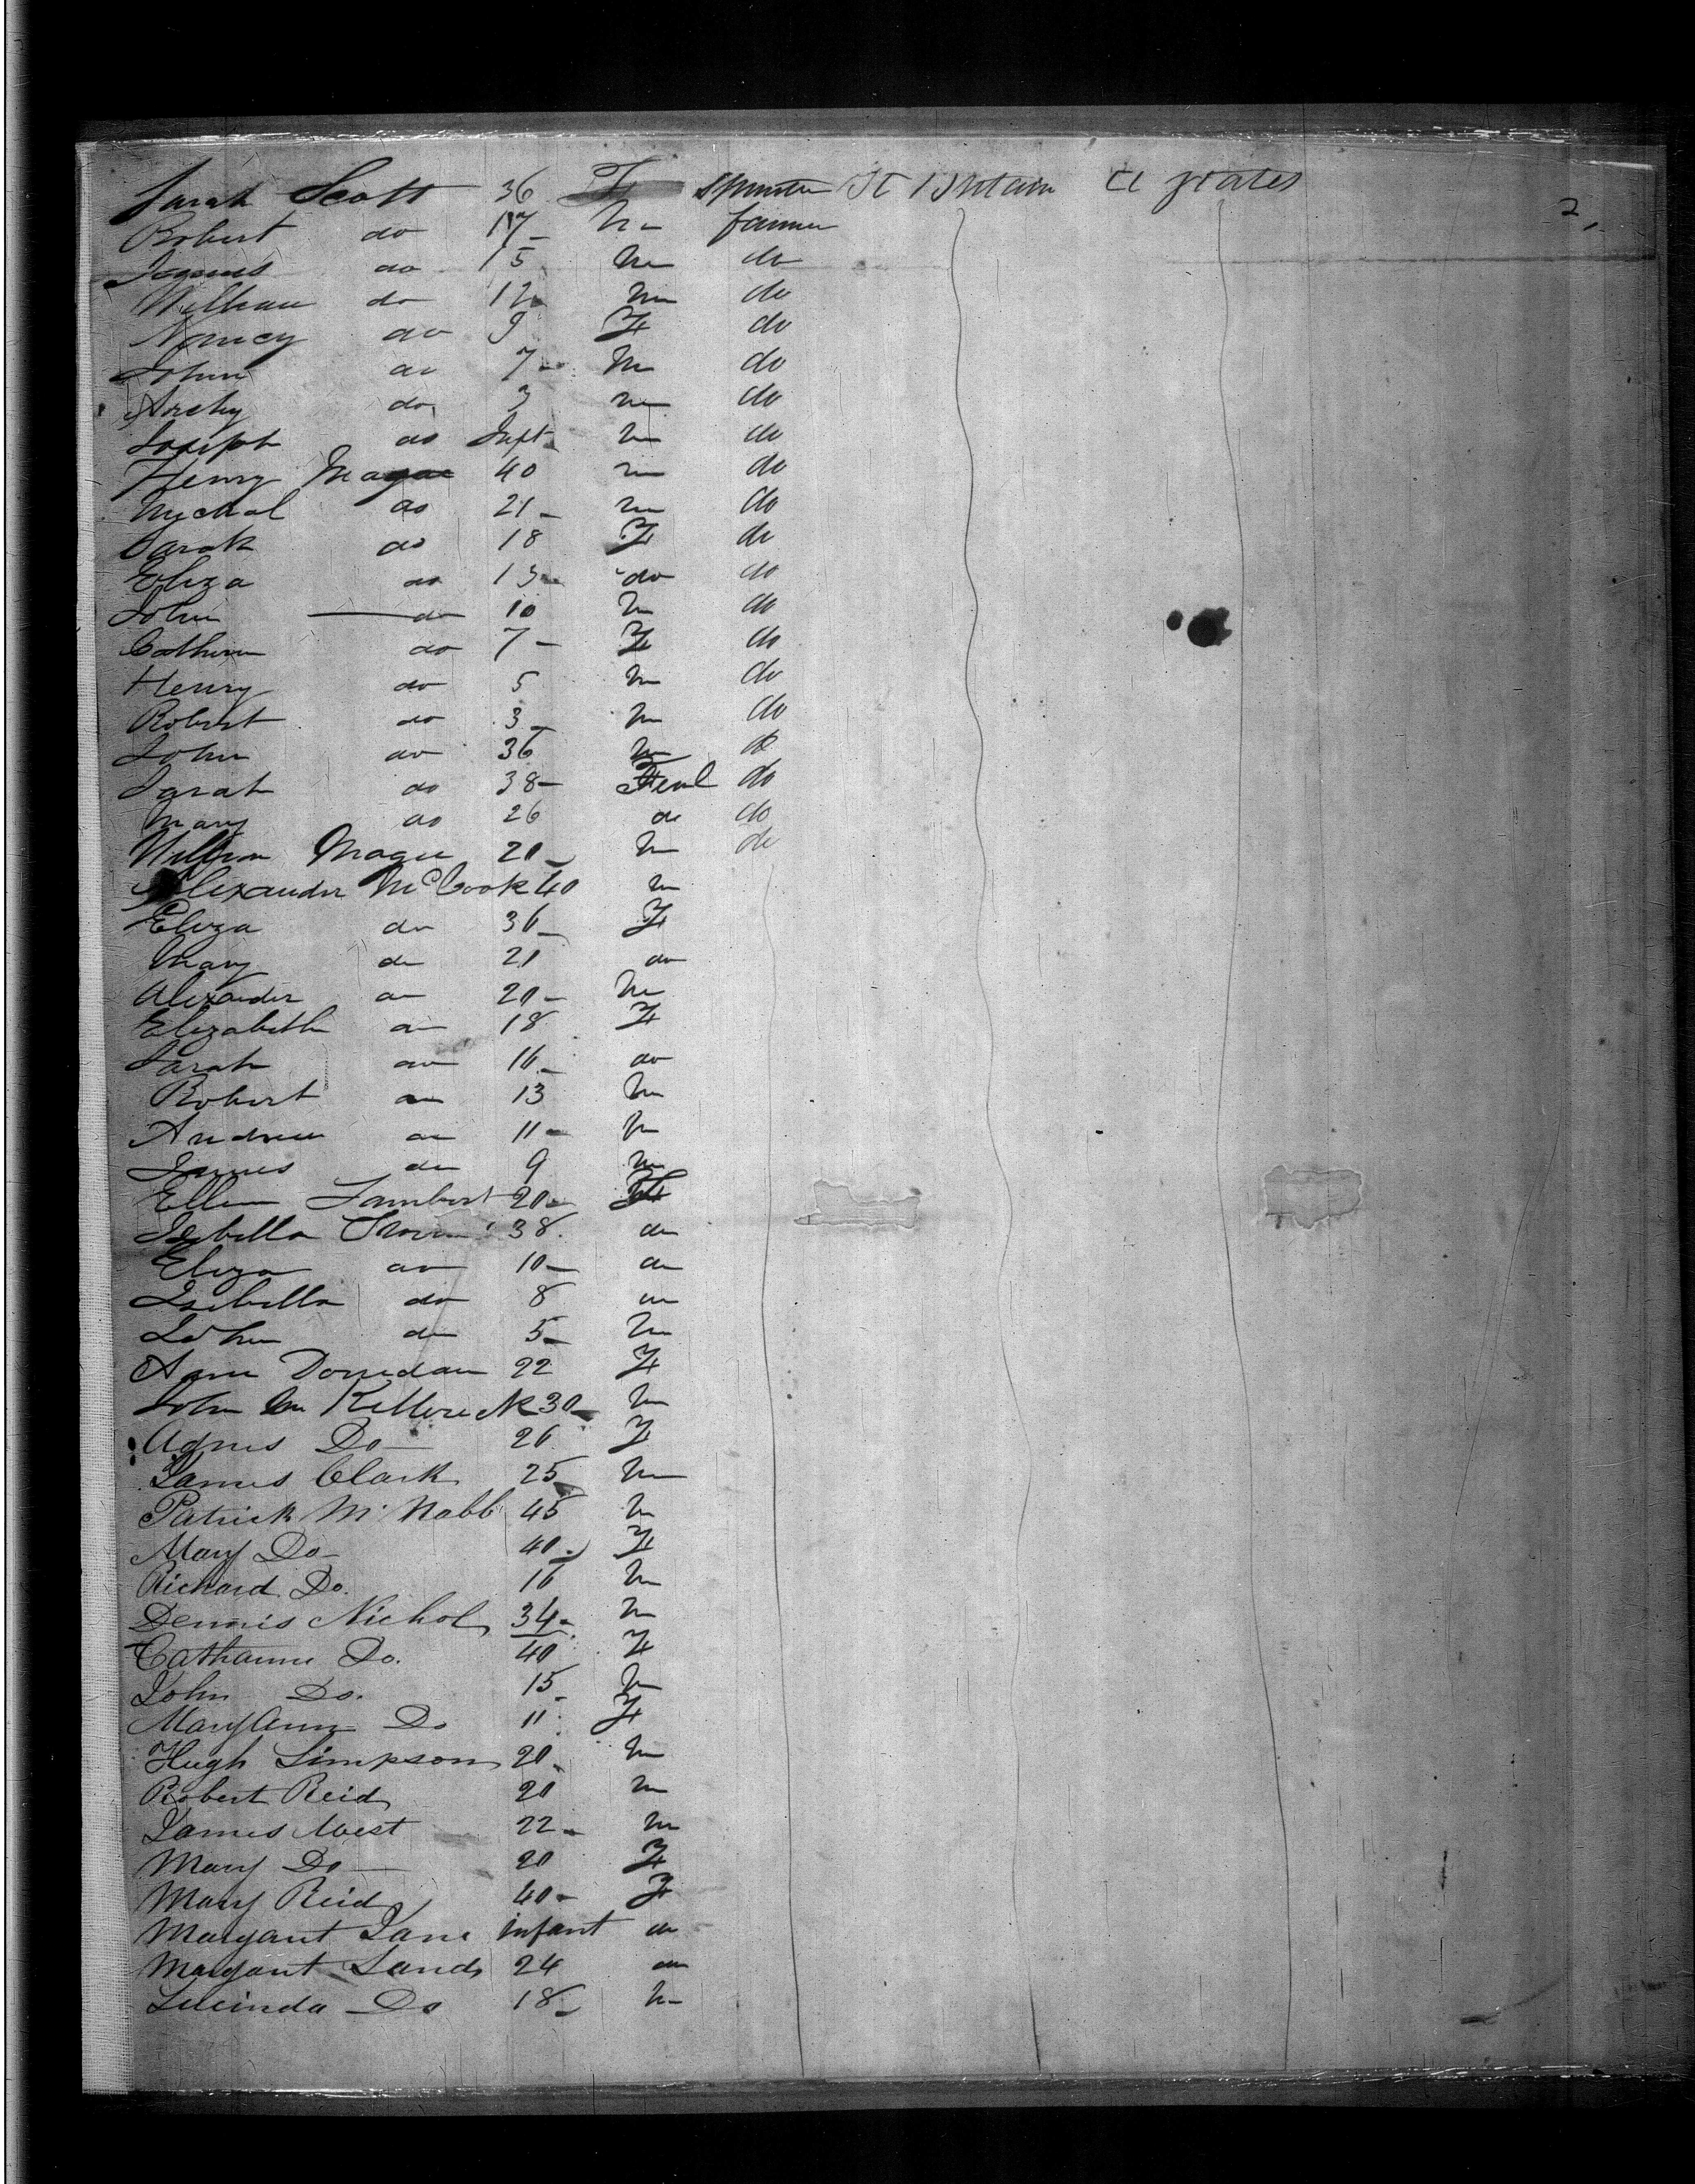 Sarah Scott 36 F Spinster Gt Britain U States
2
Robert do 17 M farmer
James do 15 M do
William do 12 M do
Nancy do 9 F do
John do 7 M do
Archy do 3 M do
Joseph do Inft M do
Henry Magee 40 M do
Mychal do 21 M do
Sarah do 18 F do
Eliza do 13 do do
John do 10 M do
Cathern do 7 F do
Henry do 5 M do
Robert do 3 M do
John do 36 M do
Sarah do 38 Feml do
Mary do 26 do do
William Magee 20 M do
Alexander McCook 40 M
Eliza do 36 F
Mary do 21 do
Alexander do 20 M
Elizabeth do 18 F
Sarah do 16 do
Robert do 13 M
Andrew do 11 M
James do 9 M
Ellen Lambert 20 F
Isbella 38 do
Eliza do 10 do
Isibella do 8 do
John do 5 M
Ann Donedan 22 F
John Mc 30 M
Agnes Do 26 F
James Clark 25 M
Patrick McNabb 45 M
Mary Do 40 F
Richard Do. 16 M
Dennis Nichols 34 M
Catharine Do. 40 F
John Do. 15 M
Mary Ann Do 11 F
Hugh Simpson 20 M
Robert Reid 20 M
James West 22 M
Mary Do 20 F
Mary Reid 40 F
Margant Jane infant do
Margant Sands 24 do
Lucinda Do 18 M